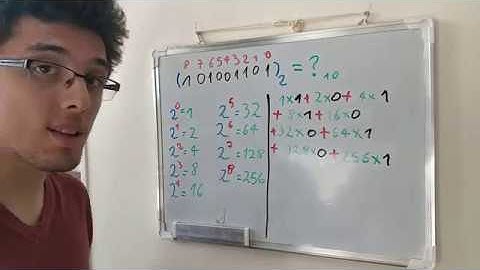 8 7 6 5 4 3 2 1 0
(101001101)₂ = ?₁₀
2⁰=1
2¹=2
2²=4
2³=8
2⁴=16
2⁵=32
2⁶=64
2⁷=128
2⁸=256
1x1+2x0+4x1
+8x1+16x0
+32x0+64x1
+128x0+256x1